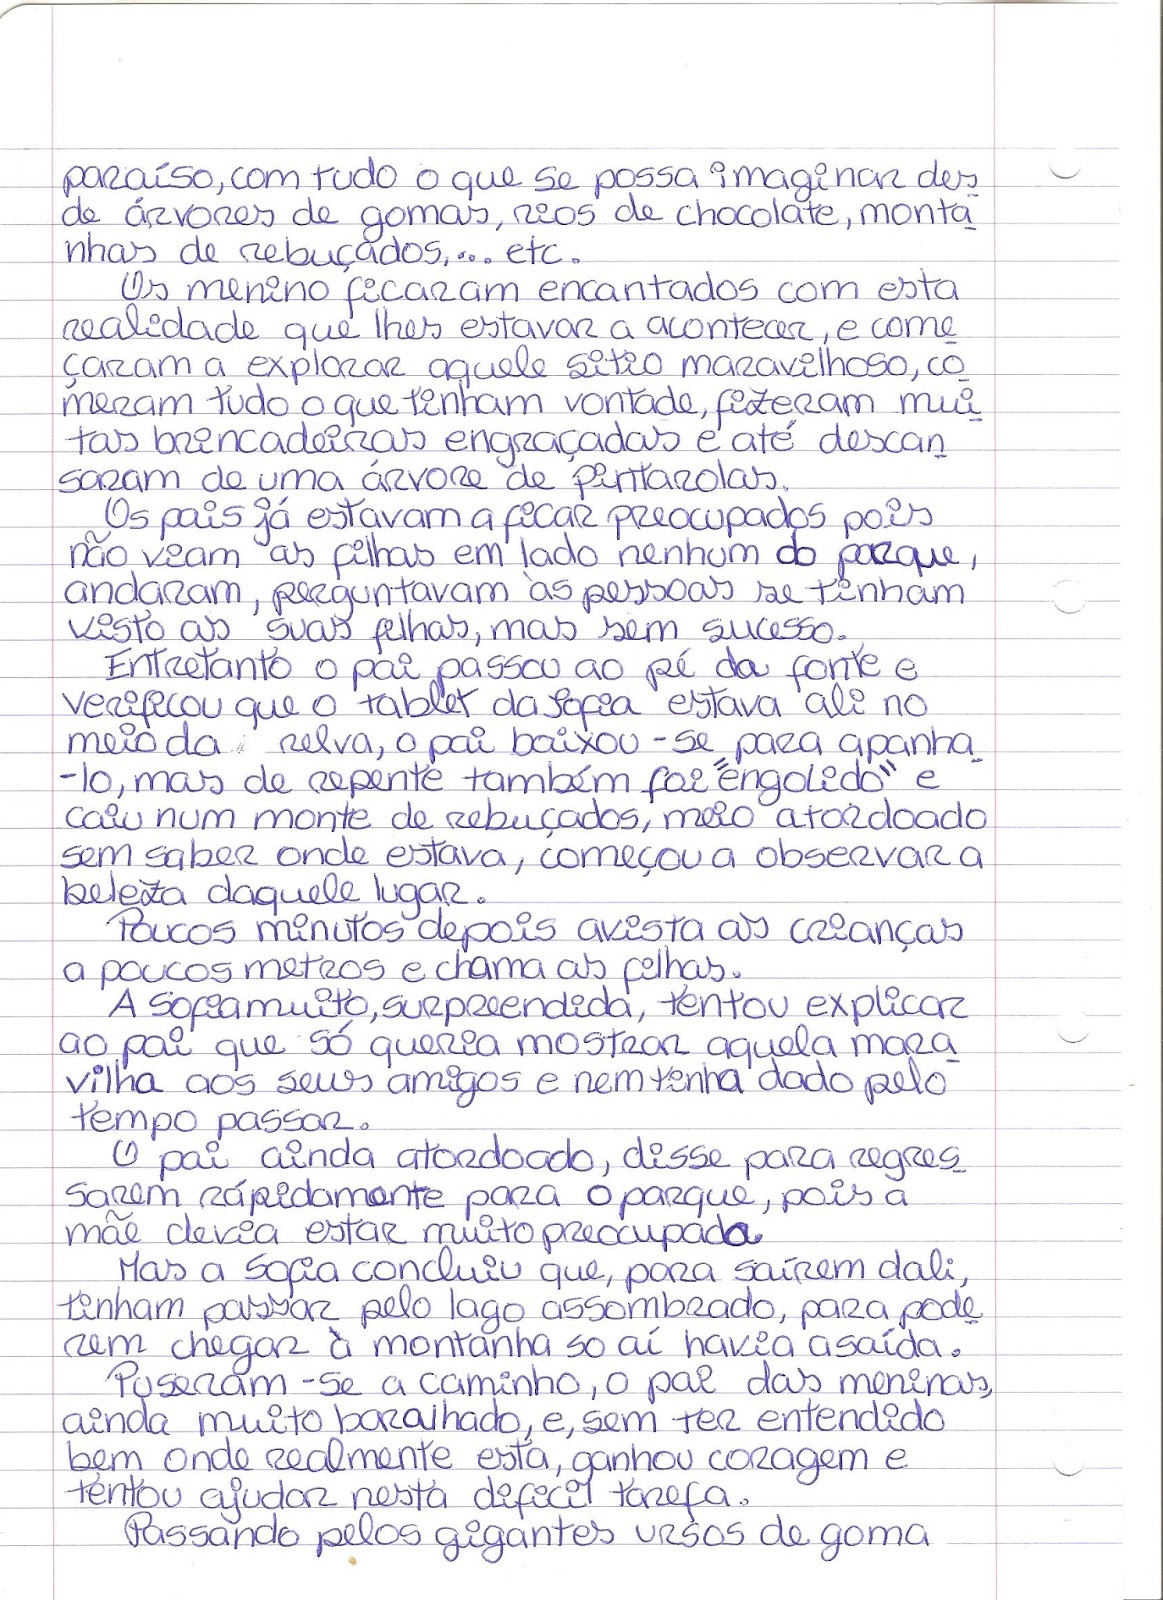 paraíso, com tudo o que se possa imaginar des_
de árvores de gomas, rios de chocolate, monta_
nhas de rebuçados,... etc.
Os menino ficaram encantados com esta
realidade que lhes estavar a acontecer, e come_
çaram a explorar aquele sitio maravilhoso, co_
meram tudo o que tinham vontade, fizeram mui_
tas brincadeiras engraçadas e até descan_
saram de uma árvore de pintarolas.
Os pais já estavam a ficar preocupados pois
não viam as filhas em lado nenhum do parque,
andaram, perguntavam às pessoas se tinham
visto as suas filhas, mas sem sucesso.
Entretanto o pai passou ao pé da fonte e
verificou que o tablet da Sofia estava ali no
meio da relva, o pai baixou-se para apanha_
-lo, mas de repente também foi "engolido" e
caiu num monte de rebuçados, meio atordoado
sem saber onde estava, começou a observar a
beleza daquele lugar.
Poucos minutos depois avista as crianças
a poucos metros e chama as filhas.
A Sofia muito, surpreendida, tentou explicar
ao pai que só queria mostrar aquela mara_
vilha aos seus amigos e nem tinha dado pelo
tempo passar.
O pai ainda atordoado, disse para regres_
sarem rápidamente para o parque, pois a
mãe devia estar muito preocupada
Mas a Sofia concluiu que, para saírem dali,
tinham passar pelo lago assombrado, para pode_
rem chegar à montanha so aí havia a saída.
Puseram-se a caminho, o pai das meninas,
ainda muito baralhado, e, sem ter entendido
bem onde realmente está, ganhou coragem e
tentou ajudar nesta dificil tarefa.
Passando pelos gigantes ursos de goma